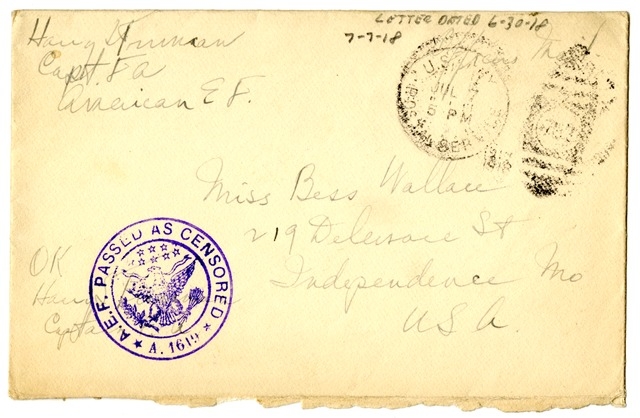 LETTER DATED 6-30-18
7-7-18
Harry S Truman
Capt. F A
American E F.
Soldiers Mail
U.S.
JUL
5 PM
SERVICE
Miss Bess Wallace
219 Delaware St
Independence Mo
U.S.A.
OK
Harry
Capt
A.E.F. PASSED AS CENSORED
A. 1619